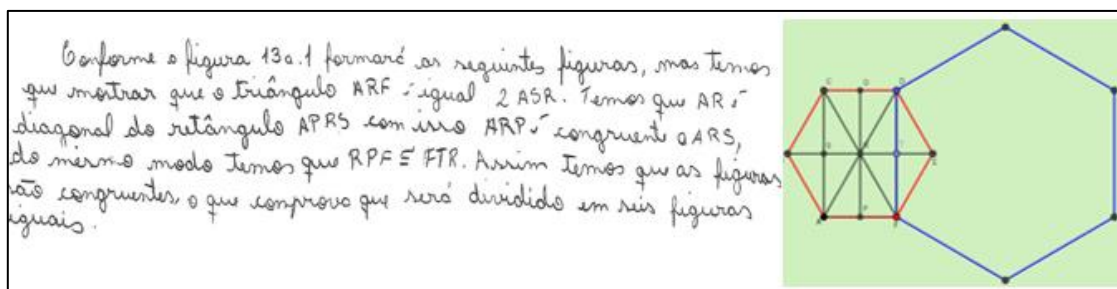 Conforme a figura 13a.1 formará as seguintes figuras, mas temos
que mostrar que o triângulo ARF é igual 2 ASR. Temos que AR é
diagonal do retângulo APRS com isso ARP é congruente a ARS,
do mesmo modo temos que RPF ≡ FTR. Assim temos que as figuras
são congruentes, o que comprova que será dividido em seis figuras
iguais.
C O D
A P